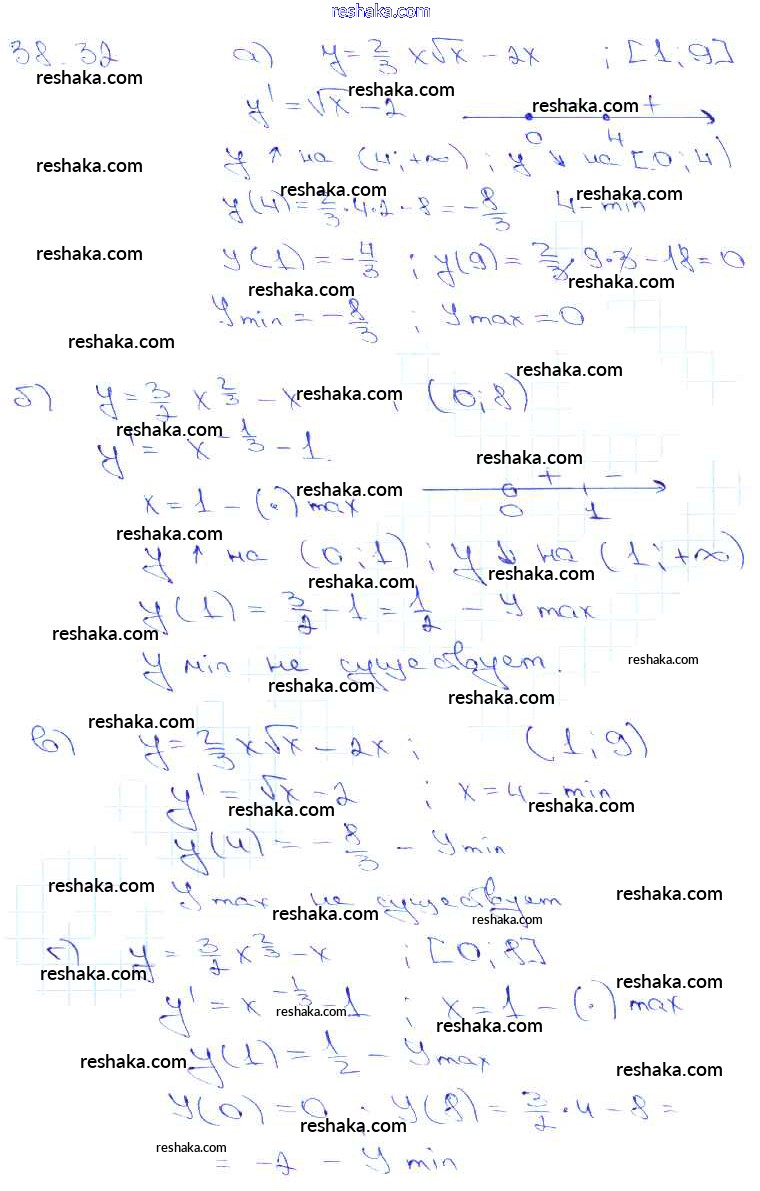 reshaka.com
38.32 а) y = 2/3 x√x − 2x ; [1; 9]
reshaka.com reshaka.com reshaka.com
y' = √x − 2 + 0 4
reshaka.com
y ↑ на (4; +∞) ; y ↓ на [0; 4)
reshaka.com reshaka.com
y(4) = 2/3 · 4 · 2 − 8 = −8/3 4 − min
reshaka.com
y(1) = −4/3 ; y(9) = 2/3 · 9 · 3 − 18 = 0
reshaka.com reshaka.com
y min = −8/3 ; y max = 0
reshaka.com
reshaka.com
б) y = 3/2 x^(2/3) − x ; (0; 8)
reshaka.com
reshaka.com
y' = x^(−1/3) − 1
reshaka.com
x = 1 − (·) max + − 0 1
reshaka.com
reshaka.com
y ↑ на (0; 1) ; y ↓ на (1; +∞)
reshaka.com reshaka.com
y(1) = 3/2 − 1 = 1/2 − y max
reshaka.com
y min не существует.
reshaka.com
reshaka.com
reshaka.com
reshaka.com
в) y = 2/3 x√x − 2x ; (1; 9)
y' = √x − 2 ; x = 4 − min
reshaka.com reshaka.com
y(4) = −8/3 − y min
reshaka.com reshaka.com
y max не существует
reshaka.com reshaka.com
г) y = 3/2 x^(2/3) − x ; [0; 8]
reshaka.com reshaka.com
y' = x^(−1/3) − 1 ; x = 1 − (·) max
reshaka.com reshaka.com
y(1) = 1/2 − y max
reshaka.com reshaka.com
y(0) = 0 ; y(8) = 3/2 · 4 − 8 =
reshaka.com
reshaka.com
= −2 − y min